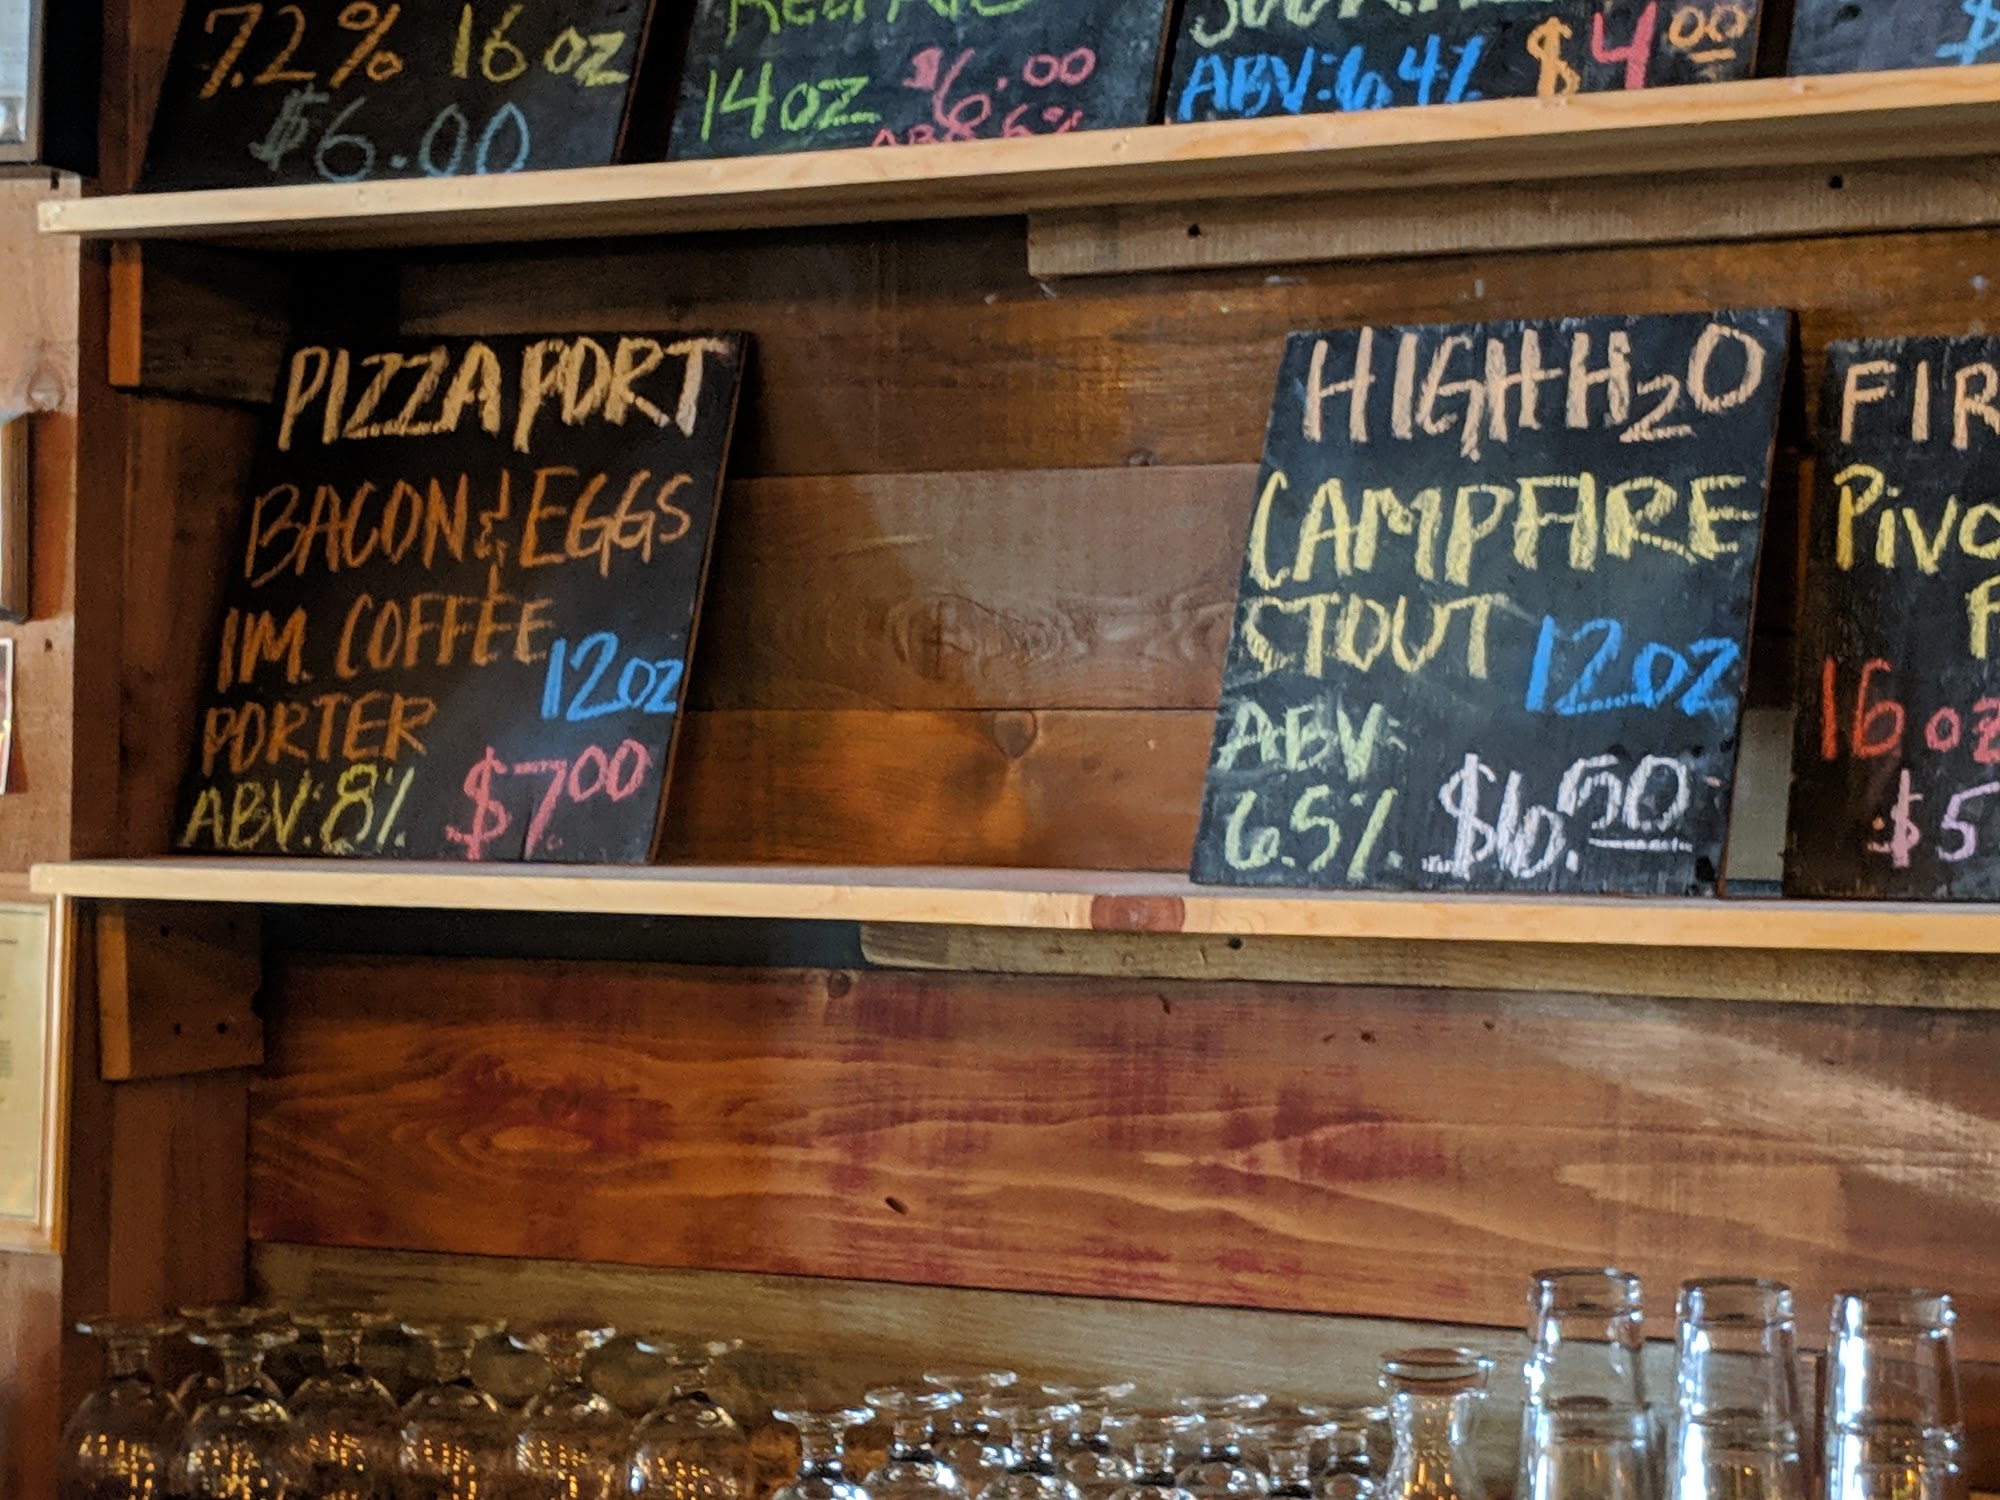 7.2% 16oz
$6.00
14oz $6.00
ABV:6.4% $4.00
PIZZA PORT
BACON & EGGS
IM. COFFEE
12oz
PORTER
ABV:8% $7.00
HIGH H2O
CAMPFIRE
STOUT 12oz
ABV:
6.5% $6.50
16oz
$5